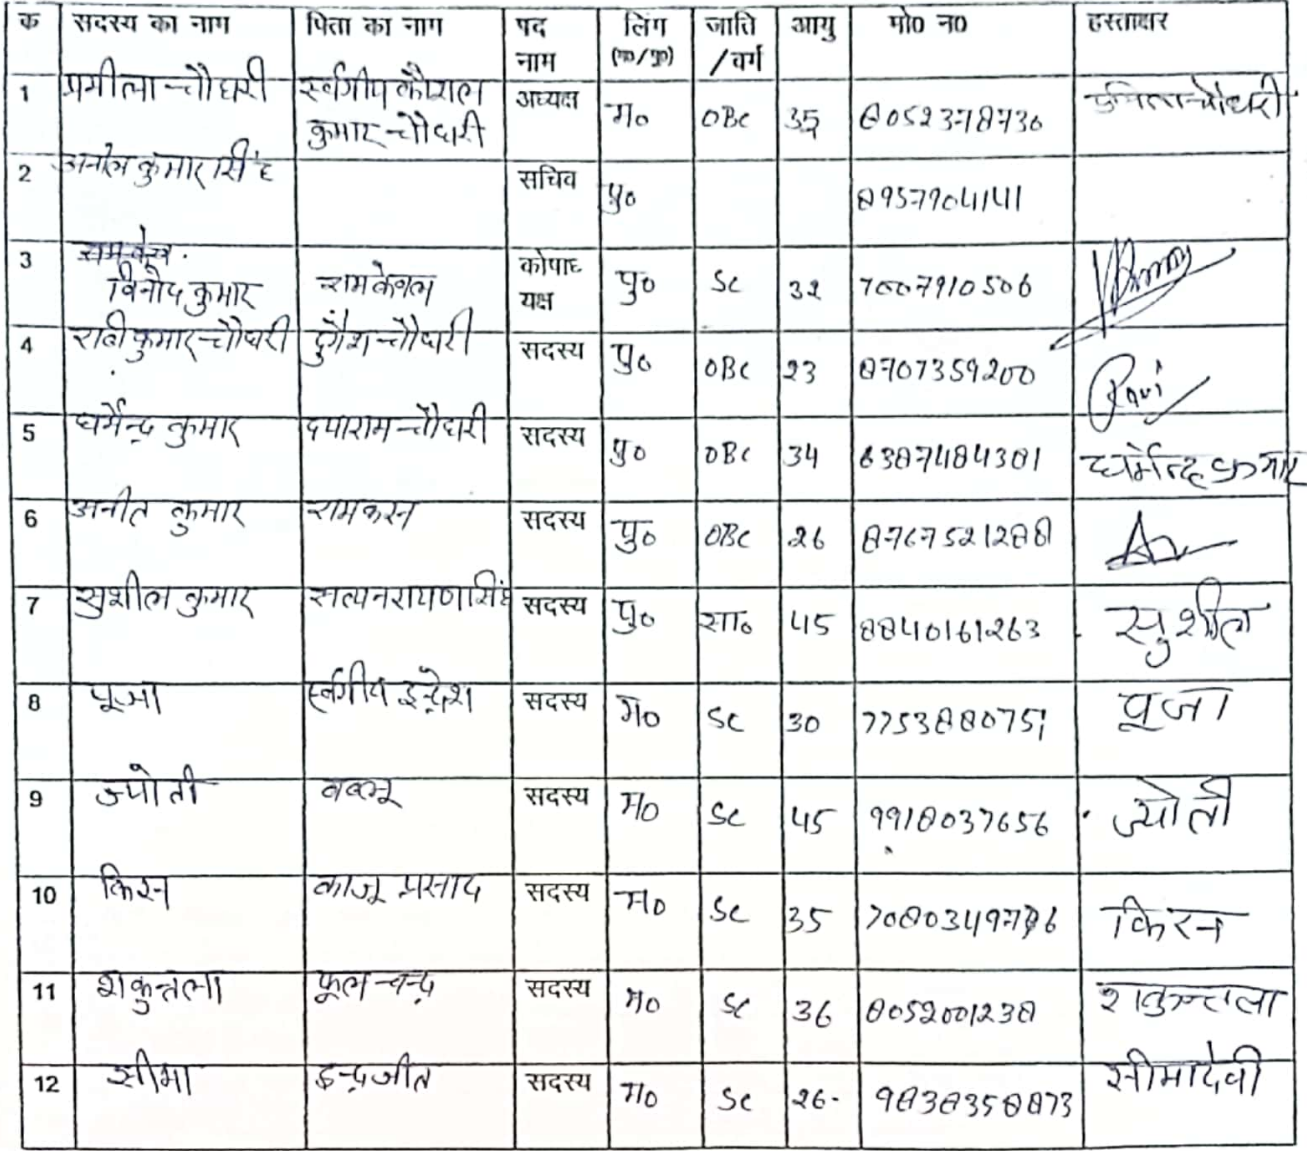 क सदस्य का नाम पिता का नाम पद नाम लिंग (म०/पु०) जाति /वर्ग आयु मो0 न0 हस्ताक्षर
1 प्रमीला चौधरी स्र्वगीय कौशल कुमार चौधरी अध्यक्ष म० OBC 35 8052378730 चौधरी
2 अनिल कुमार सिंह सचिव पु० 8957904141
3 विनोद कुमार रामकेवल कोषाध्यक्ष पु० SC 32 7007910506
4 रवी कुमार चौधरी दुर्गेश चौधरी सदस्य पु० OBC 23 8707359200 Ravi
5 धर्मेन्द्र कुमार दयाराम चौधरी सदस्य पु० OBC 34 6387484381 धर्मेन्द्र कुमार
6 अनीत कुमार रामकरन सदस्य पु० OBC 26 8767521288
7 सुशील कुमार सत्यनरायण सिंह सदस्य पु० सा० 45 8840161263 सुशील
8 पूजा स्र्वगीय इन्द्रेश सदस्य म० SC 30 7753880751 पूजा
9 ज्योती बबलू सदस्य म० SC 45 9918037656 ज्योती
10 किरन काजू प्रसाद सदस्य म० SC 35 किरन
11 शकुन्तला फूलचन्द्र सदस्य म० SC 36 8052001238 शकुन्तला
12 सीमा इन्द्रजीत सदस्य म० SC 26 9838358873 सीमादेवी